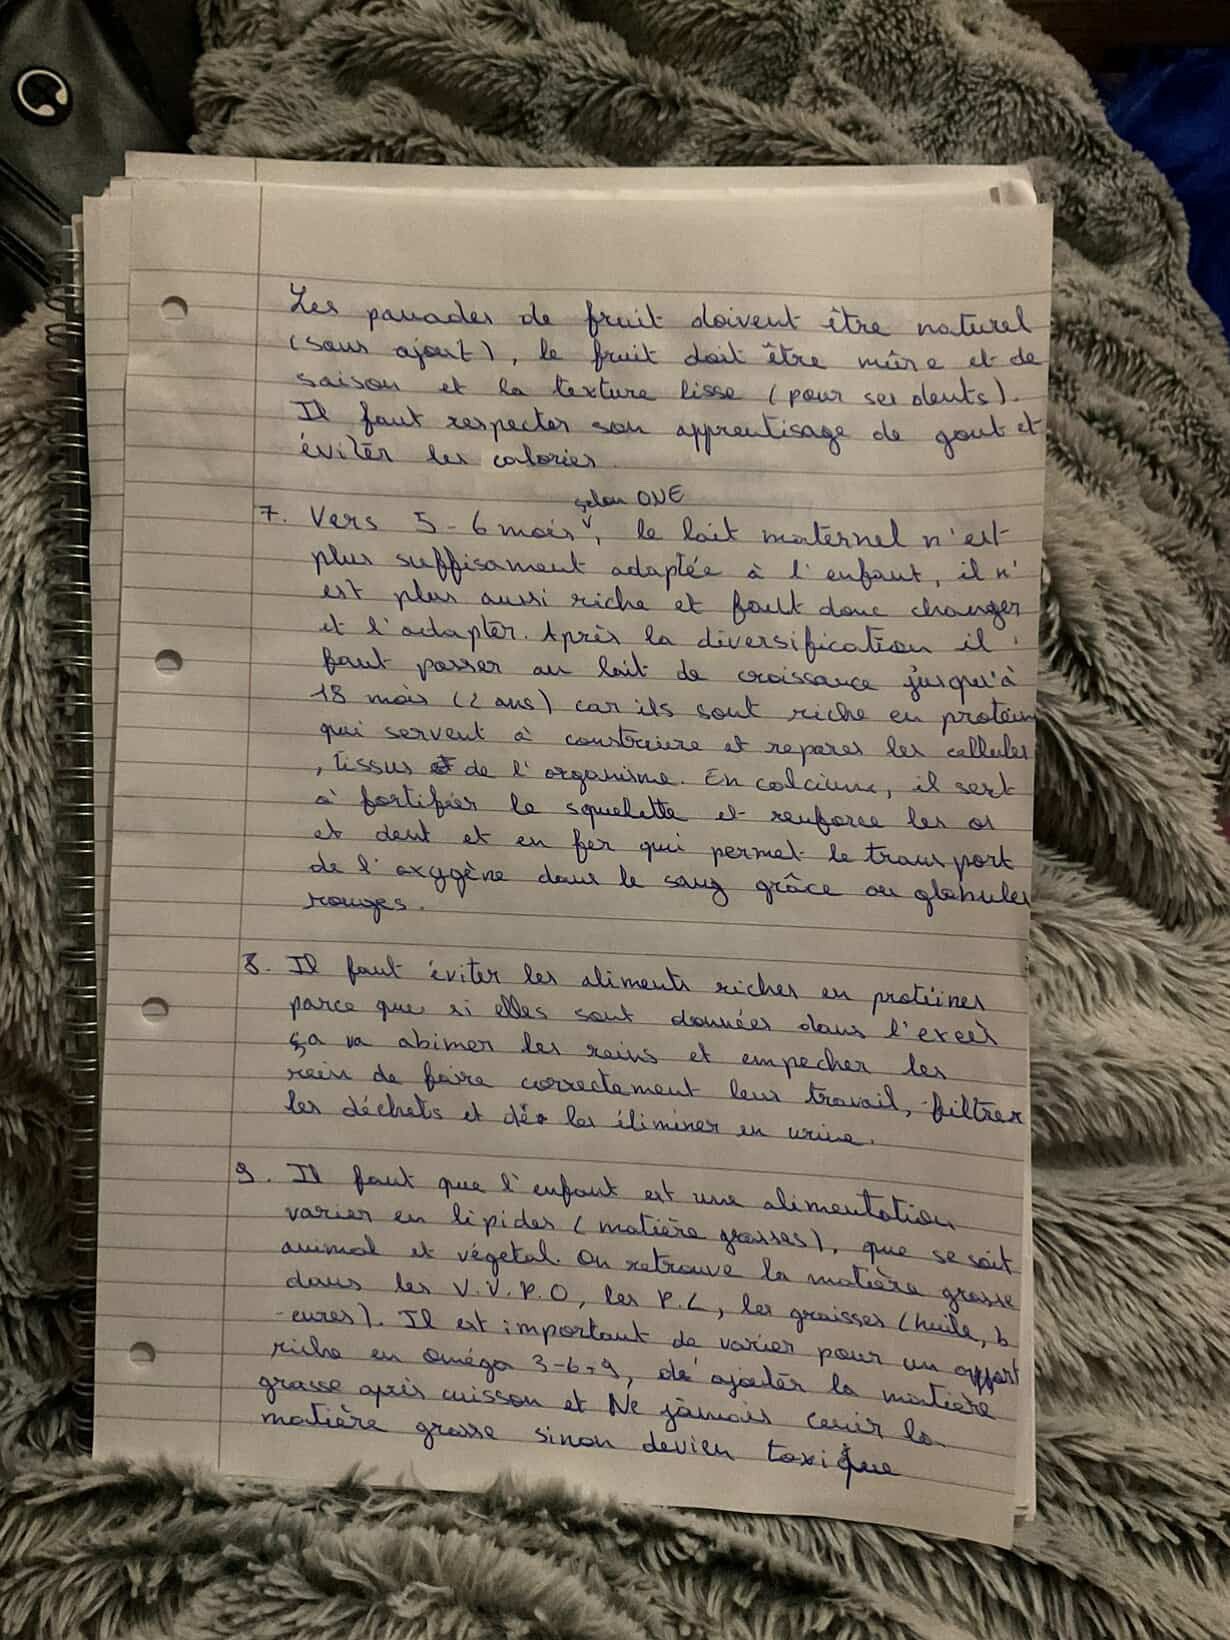 Les panades de fruit doivent être naturel
(sans ajout), le fruit doit être mûre et de
saison et la texture lisse (pour ses dents).
Il faut respecter son apprentisage de gout et
éviter les calories.
selon ONE
7. Vers 5-6 mois, le lait maternel n'est
plus suffisament adaptée à l'enfant, il n'
est plus aussi riche et fault donc changer
et l'adapter. Après la diversification il
faut passer au lait de croissance jusqu'à
18 mois (2 ans) car ils sont riche en protéin
qui servent à construire et reparer les cellules
, tissus de l'organisme. En calcium, il sert
à fortifier le squelette et renforce les os
et dent et en fer qui permet le transport
de l'oxygène dans le sang grâce au globules
rouges.
8. Il faut éviter les aliments riches en protéines
parce que si elles sont données dans l'excès
ça va abimer les reins et empecher les
rein de faire correctement leur travail, filtrer
les déchets et les éliminer en urine.
9. Il faut que l'enfant est une alimentation
varier en lipides (matière grasses), que se soit
animal et végétal. On retrouve la matière grasse
dans les V.V.P.O, les P.L, les graisses (huile, b
-eures). Il est important de varier pour un apport
riche en oméga 3-6-9, de ajouter la matière
grasse après cuisson et Ne jamais cuir la
matière grasse sinon devien toxique